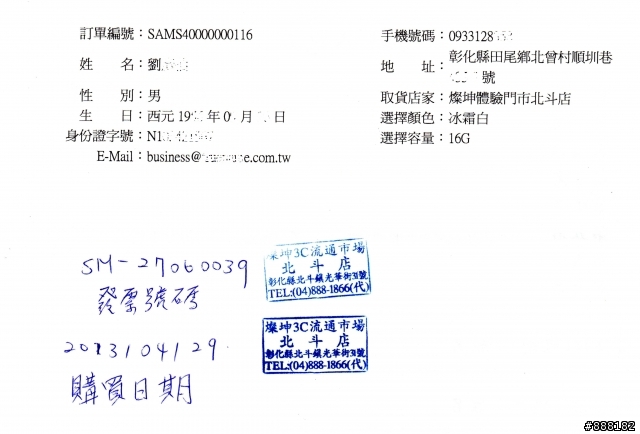 訂單編號：SAMS40000000116
姓 名：劉
性 別：男
生 日：西元 19 年 0 月 日
身份證字號：N1
E-Mail：business@ e.com.tw
手機號碼：0933128
地 址：彰化縣田尾鄉北曾村順圳巷
號
取貨店家：燦坤體驗門市北斗店
選擇顏色：冰霜白
選擇容量：16G
SM-27060039
發票號碼
2013/04/29
購買日期
燦坤3C流通市場
北斗店
彰化縣北斗鎮光華街31號
TEL:(04)888-1866(代)
燦坤3C流通市場
北斗店
彰化縣北斗鎮光華街31號
TEL:(04)888-1866(代)
#888182